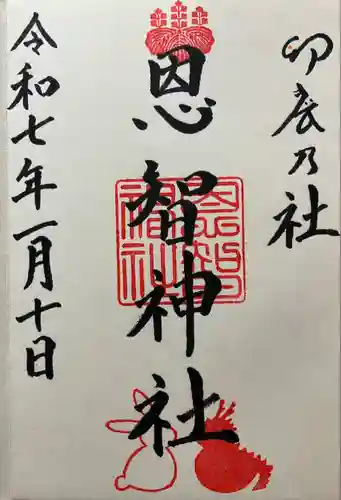 卯辰乃社
恩智神社
恩智神社
令和七年一月十日